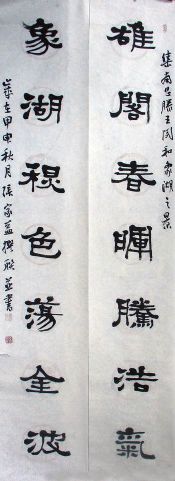 集南昌滕王阁和象湖之景
雄閣春暉騰浩氣
象湖穏色蕩金波
歲在甲申秋月張家益撰聯並書